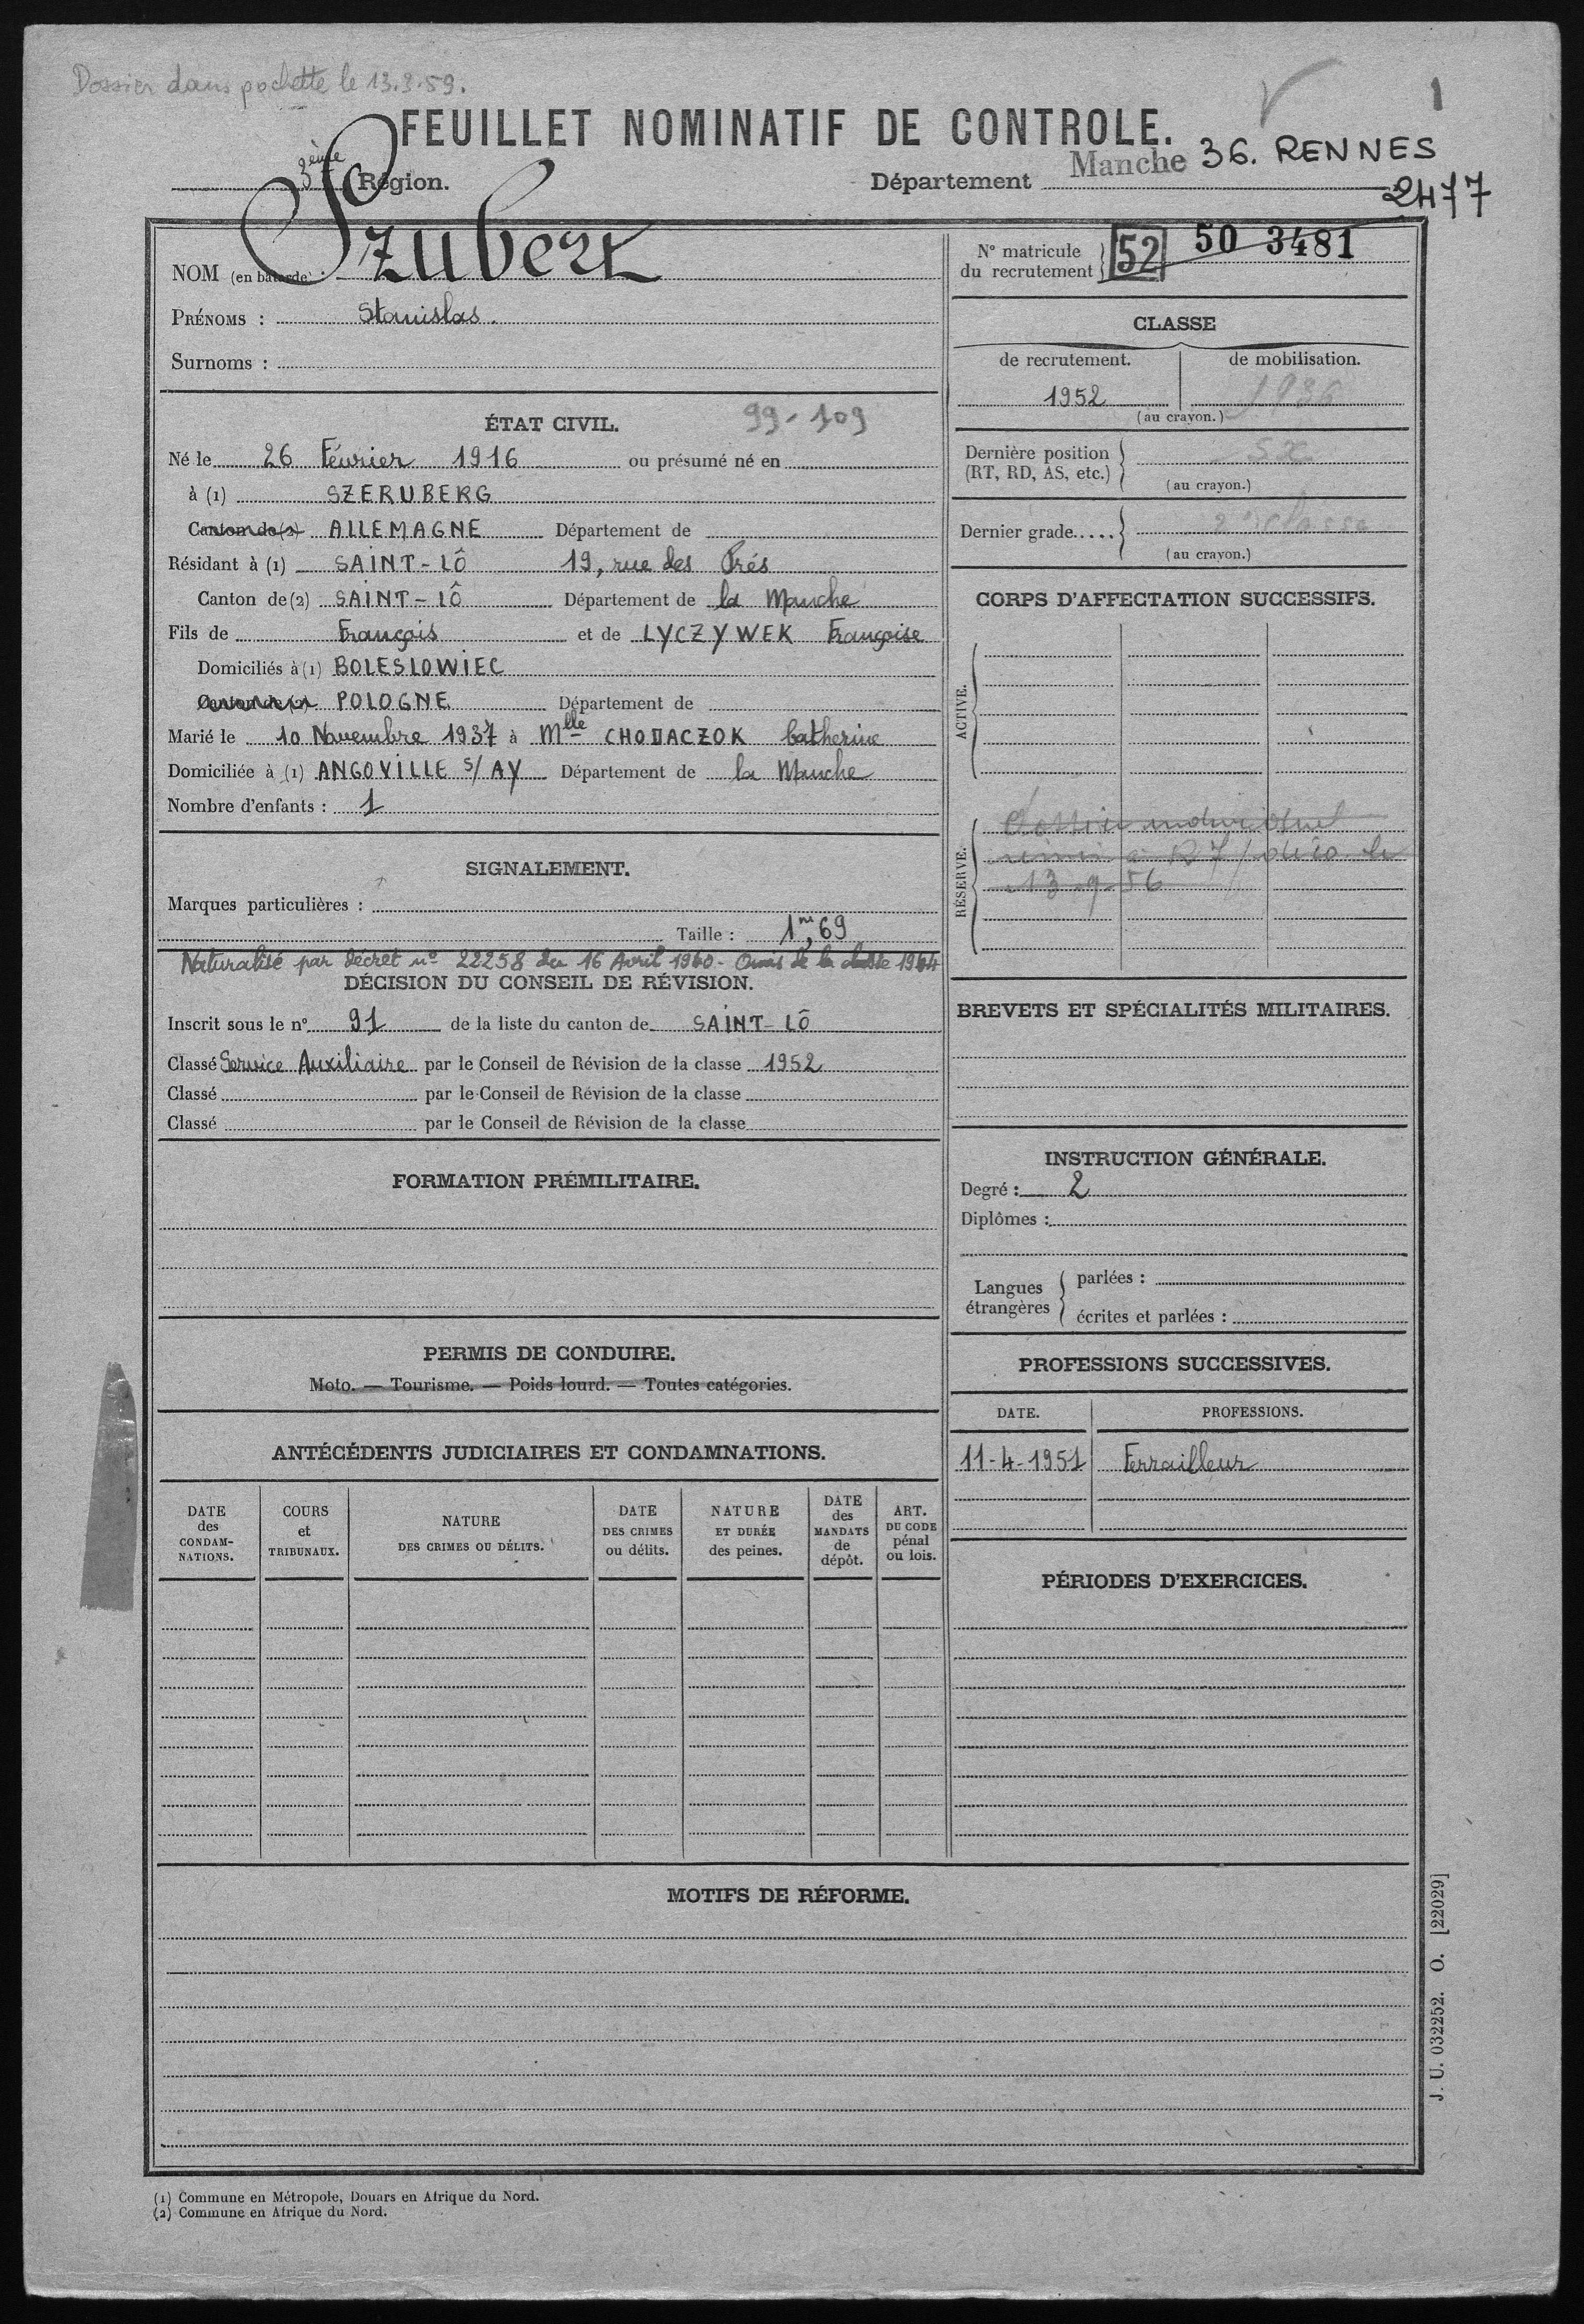 Dossier dans pochette le 13.9.59.
1
FEUILLET NOMINATIF DE CONTROLE.
3ème Région.
Département Manche 36. RENNES
2477
NOM (en batarde) : Szubert
PRÉNOMS : Stanislas.
Surnoms :
N° matricule du recrutement 52 50 3481
CLASSE
de recrutement. de mobilisation.
1952 1936
(au crayon.)
ÉTAT CIVIL. 99-109
Né le 26 Février 1916 ou présumé né en
à (1) SZERUBERG
Canton de (2) ALLEMAGNE Département de
Résidant à (1) SAINT-LÔ 19, rue des Prés
Canton de (2) SAINT-LÔ Département de la Manche
Fils de François et de LYCZYWEK Françoise
Domiciliés à (1) BOLESLOWIEC
Canton de (2) POLOGNE Département de
Marié le 10 Novembre 1937 à Mlle CHODACZOK Catherine
Domiciliée à (1) ANGOVILLE s/ AY Département de la Manche
Nombre d'enfants : 1
Dernière position (RT, RD, AS, etc.) SX
(au crayon.)
Dernier grade..... 2e classe
(au crayon.)
CORPS D'AFFECTATION SUCCESSIFS.
ACTIVE.
RÉSERVE.
Dossier individuel
remis à R7/ le
13-9-56
SIGNALEMENT.
Marques particulières :
Taille : 1m,69
Naturalisé par décret n° 22258 du 16 Avril 1960 - Omis de la classe 1964
DÉCISION DU CONSEIL DE RÉVISION.
Inscrit sous le n° 91 de la liste du canton de SAINT-LÔ
Classé Service Auxiliaire par le Conseil de Révision de la classe 1952
Classé par le Conseil de Révision de la classe
Classé par le Conseil de Révision de la classe
BREVETS ET SPÉCIALITÉS MILITAIRES.
FORMATION PRÉMILITAIRE.
INSTRUCTION GÉNÉRALE.
Degré : 2
Diplômes :
Langues étrangères
parlées :
écrites et parlées :
PERMIS DE CONDUIRE.
Moto. — Tourisme. — Poids lourd. — Toutes catégories.
PROFESSIONS SUCCESSIVES.
DATE. PROFESSIONS.
11-4-1951 Ferrailleur
ANTÉCÉDENTS JUDICIAIRES ET CONDAMNATIONS.
DATE des CONDAM-NATIONS.
COURS et TRIBUNAUX.
NATURE DES CRIMES OU DÉLITS.
DATE DES CRIMES ou délits.
NATURE ET DURÉE des peines.
DATE des MANDATS de dépôt.
ART. DU CODE pénal ou lois.
PÉRIODES D'EXERCICES.
MOTIFS DE RÉFORME.
J. U. 032252. O. [22029]
(1) Commune en Métropole, Douars en Afrique du Nord.
(2) Commune en Afrique du Nord.